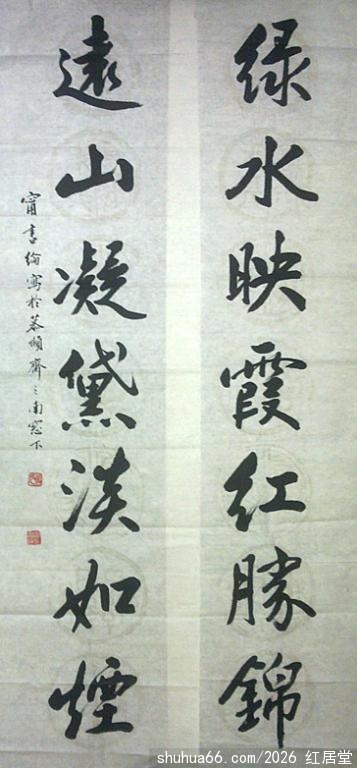 绿水映霞红勝錦
遠山凝黛淡如煙
甯書綸寫於慕顏齋之南窓下
shuhua66.com/2026 红居堂